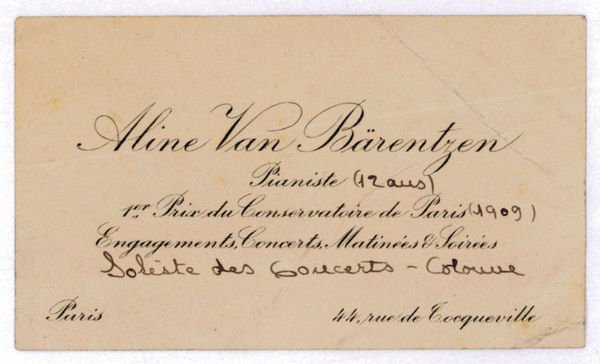 Aline Van Bärentzen
Pianiste (12 ans)
1er Prix du Conservatoire de Paris (1909)
Engagements, Concerts, Matinées & Soirées
Soliste des Concerts - Colonne
Paris 44, rue de Tocqueville